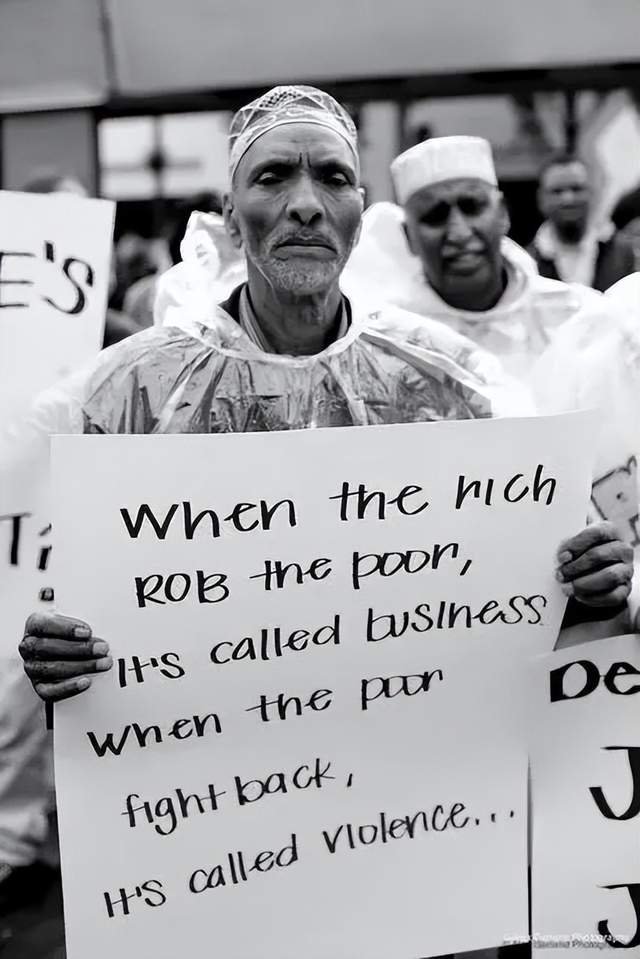 E'S
When the rich
ROB the poor,
It's called business
When the poor
fight back,
It's called violence...
Ti
De
J
J